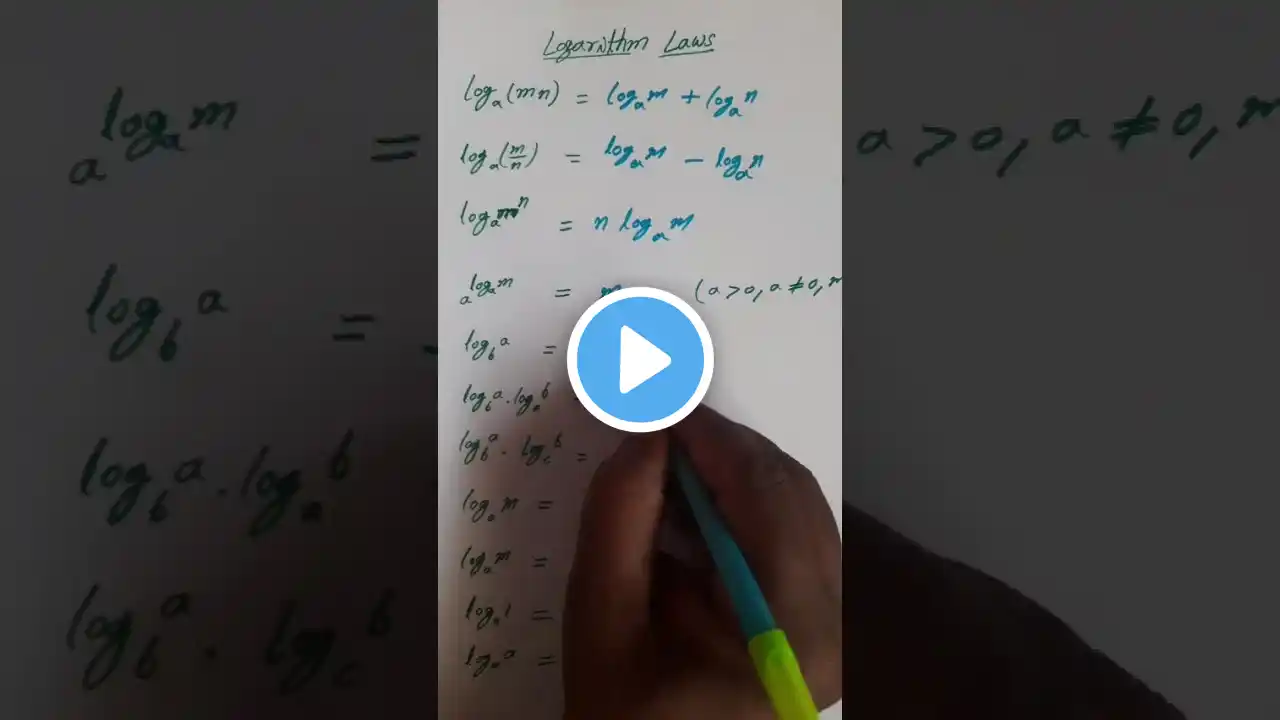 Logarithm Laws
logₐ(mn) = logₐm + logₐn
logₐ(m/n) = logₐm − logₐn
logₐmⁿ = n logₐm
a^(logₐm) = m (a>0, a≠0, m
log_b a =
log_b a · logₐ b =
log_b a · log_c b =
logₐ m =
logₐ m =
logₐ 1 =
logₐ a =